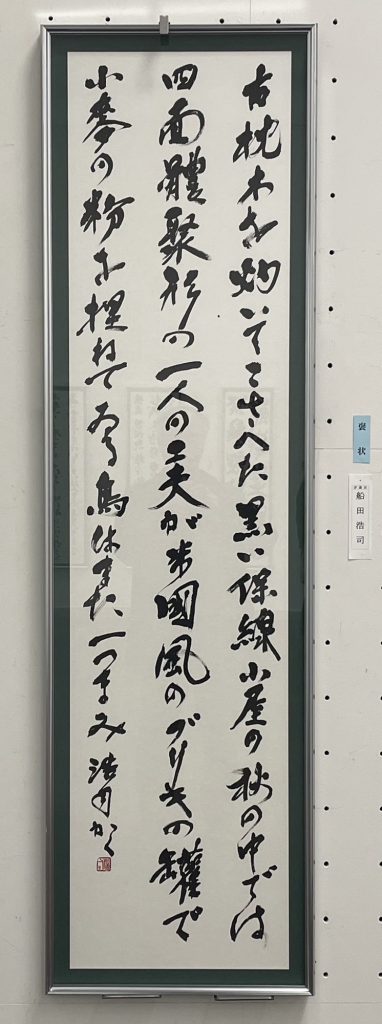 古枕木を灼いてこさへた黒い保線小屋の秋の中では
四面體聚形の一人の工夫が米國風のブリキの罐で
小麥の粉を捏ねてゐる鳥はまた一つまみ 浩司かく
褒状
船田浩司